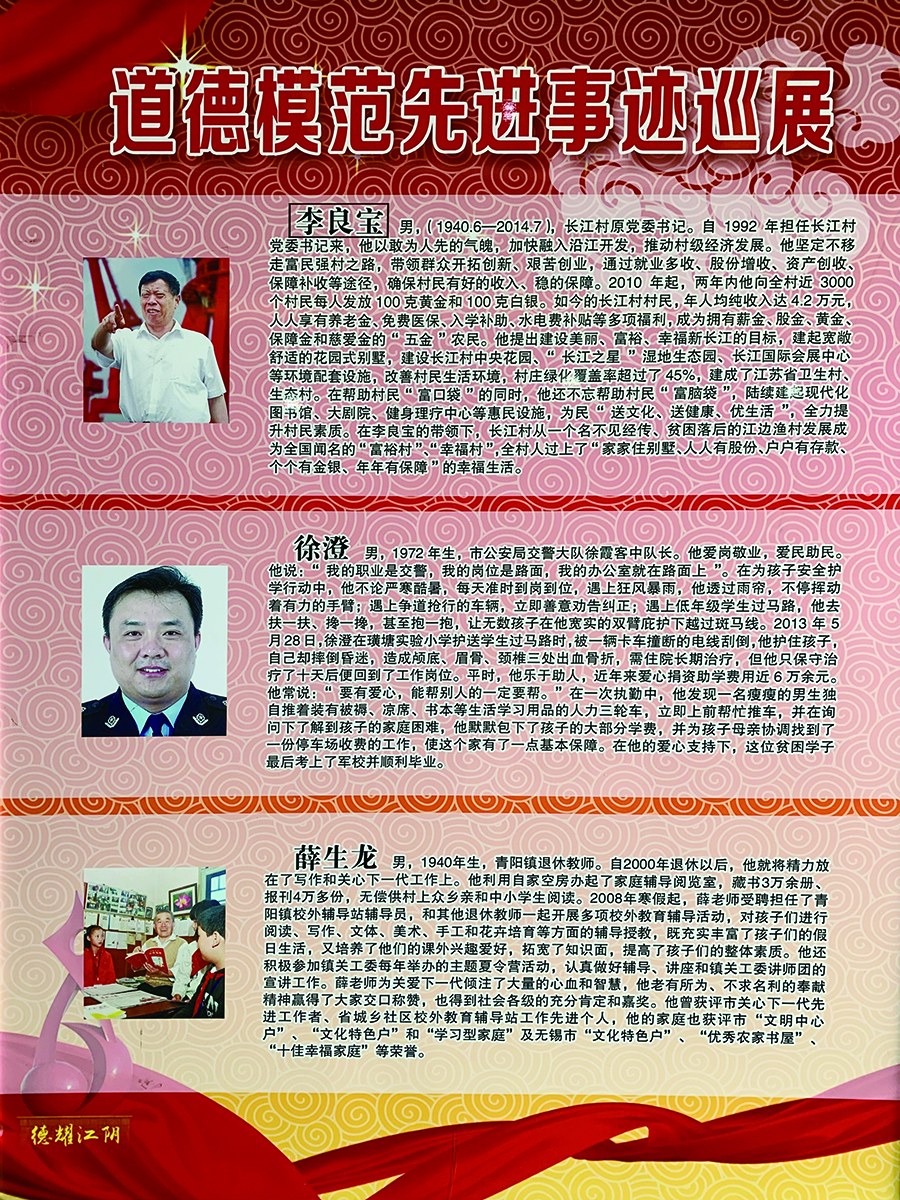 道德模范先进事迹巡展
李良宝 男,(1940.6—2014.7),长江村原党委书记。自 1992 年担任长江村
党委书记来,他以敢为人先的气魄,加快融入沿江开发,推动村级经济发展。他坚定不移
走富民强村之路,带领群众开拓创新、艰苦创业,通过就业多收、股份增收、资产创收、
保障补收等途径,确保村民有好的收入、稳的保障。2010 年起,两年内他向全村近 3000
个村民每人发放 100 克黄金和 100 克白银。如今的长江村村民,年人均纯收入达 4.2 万元,
人人享有养老金、免费医保、入学补助、水电费补贴等多项福利,成为拥有薪金、股金、黄金、
保障金和慈爱金的“五金”农民。他提出建设美丽、富裕、幸福新长江的目标,建起宽敞
舒适的花园式别墅,建设长江村中央花园、“长江之星”湿地生态园、长江国际会展中心
等环境配套设施,改善村民生活环境,村庄绿化覆盖率超过了 45%,建成了江苏省卫生村、
生态村。在帮助村民“富口袋”的同时,他还不忘帮助村民“富脑袋”,陆续建起现代化
图书馆、大剧院、健身理疗中心等惠民设施,为民“送文化、送健康、优生活”,全力提
升村民素质。在李良宝的带领下,长江村从一个名不见经传、贫困落后的江边渔村发展成
为全国闻名的“富裕村”、“幸福村”,全村人过上了“家家住别墅、人人有股份、户户有存款、
个个有金银、年年有保障”的幸福生活。
徐澄 男,1972 年生,市公安局交警大队徐霞客中队长。他爱岗敬业,爱民助民。
他说:“我的职业是交警,我的岗位是路面,我的办公室就在路面上”。在为孩子安全护
学行动中,他不论严寒酷暑,每天准时到岗到位,遇上狂风暴雨,他透过雨帘,不停挥动
着有力的手臂;遇上争道抢行的车辆,立即善意劝告纠正;遇上低年级学生过马路,他去
扶一扶、搀一搀,甚至抱一抱,让无数孩子在他宽实的双臂庇护下越过斑马线。2013 年 5
月 28 日,徐澄在璜塘实验小学护送学生过马路时,被一辆卡车撞断的电线刮倒,他护住孩子,
自己却摔倒昏迷,造成颅底、眉骨、颈椎三处出血骨折,需住院长期治疗,但他只保守治
疗了十天后便回到了工作岗位。平时,他乐于助人,近年来爱心捐资助学费用近 6 万余元。
他常说:“要有爱心,能帮别人的一定要帮。”在一次执勤中,他发现一名瘦瘦的男生独
自推着装有被褥、凉席、书本等生活学习用品的人力三轮车,立即上前帮忙推车,并在询
问下了解到孩子的家庭困难,他默默包下了孩子的大部分学费,并为孩子母亲协调找到了
一份停车场收费的工作,使这个家有了一点基本保障。在他的爱心支持下,这位贫困学子
最后考上了军校并顺利毕业。
薛生龙 男,1940年生,青阳镇退休教师。自2000年退休以后,他就将精力放
在了写作和关心下一代工作上。他利用自家空房办起了家庭辅导阅览室,藏书3万余册、
报刊4万多份,无偿供村上众乡亲和中小学生阅读。2008年寒假起,薛老师受聘担任了青
阳镇校外辅导站辅导员,和其他退休教师一起开展多项校外教育辅导活动,对孩子们进行
阅读、写作、文体、美术、手工和花卉培育等方面的辅导授教,既充实丰富了孩子们的假
日生活,又培养了他们的课外兴趣爱好,拓宽了知识面,提高了孩子们的整体素质。他还
积极参加镇关工委每年举办的主题夏令营活动,认真做好辅导、讲座和镇关工委讲师团的
宣讲工作。薛老师为关爱下一代倾注了大量的心血和智慧,他老有所为、不求名利的奉献
精神赢得了大家交口称赞,也得到社会各级的充分肯定和嘉奖。他曾获评市关心下一代先
进工作者、省城乡社区校外教育辅导站工作先进个人,他的家庭也获评市“文明中心
户”、“文化特色户”和“学习型家庭”及无锡市“文化特色户”、“优秀农家书屋”、
“十佳幸福家庭”等荣誉。
德耀江阴